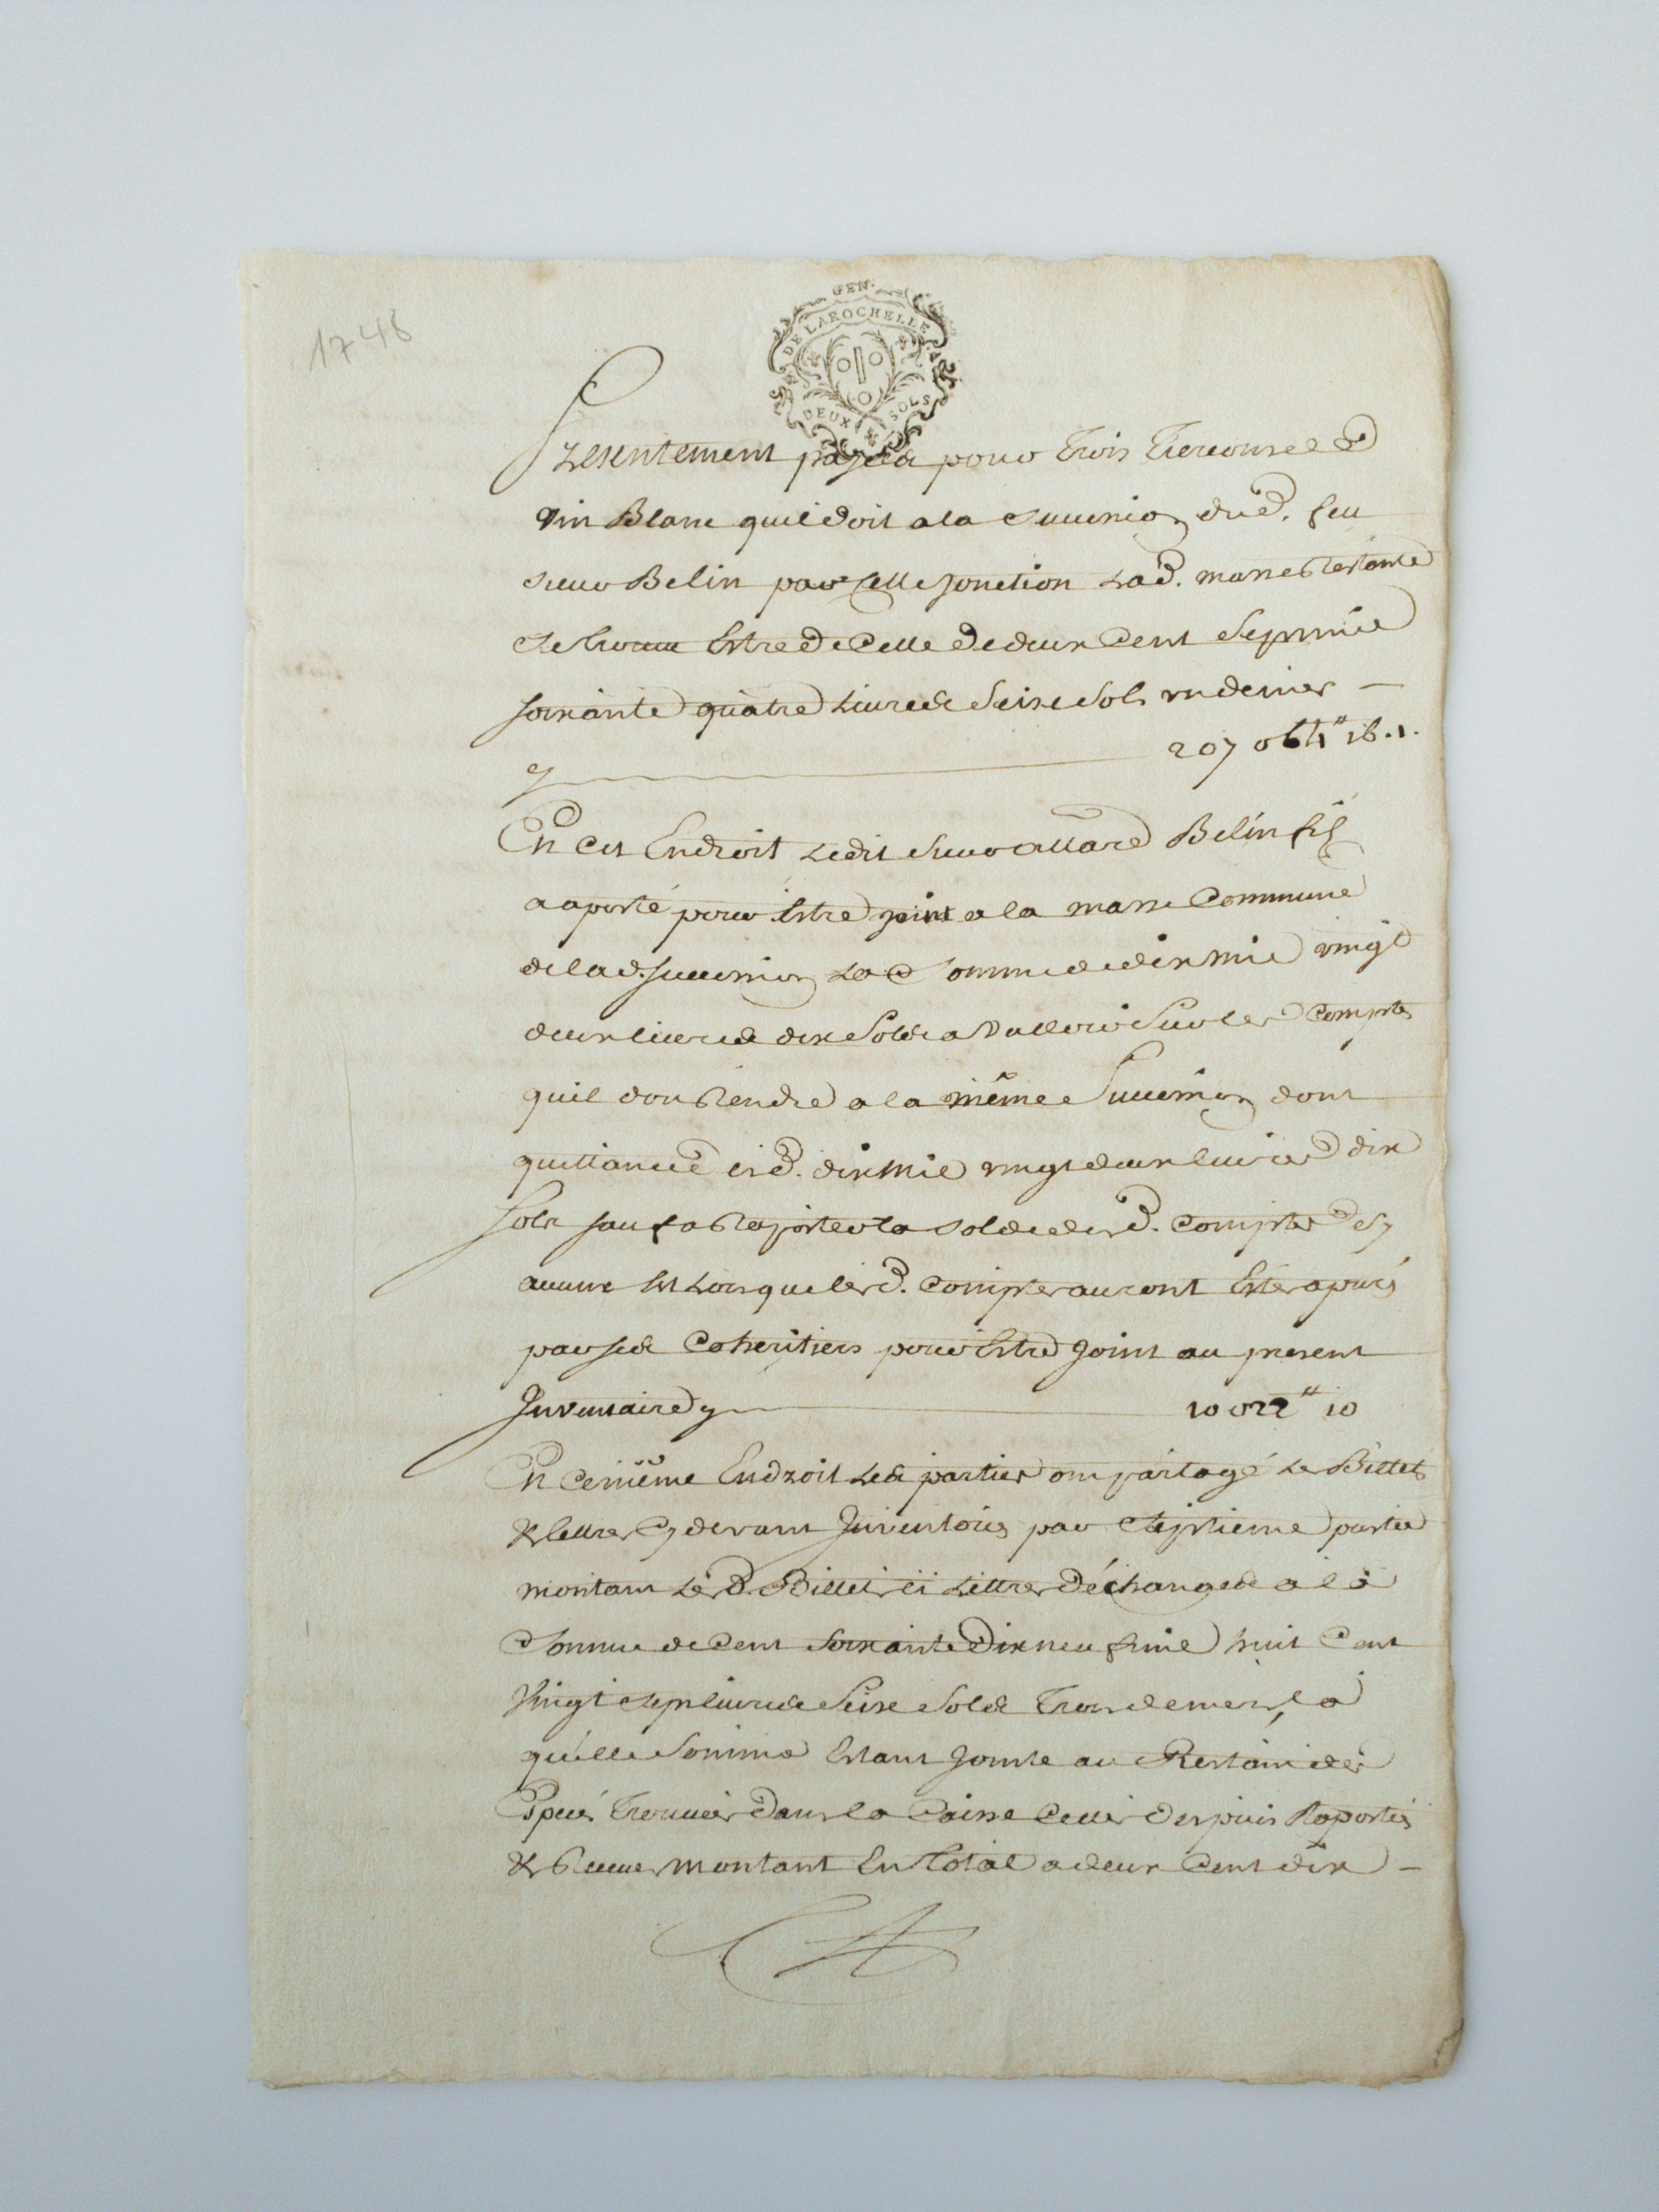 1748
GEN.
DE LAROCHELLE
DEUX SOLS
Presentement payéé pour trois tiercons de
vin Blanc quil doit a la succession dud. feu
sieur Belin par cette jonction lad. masse restante
se trouve Estre de Celle de deux Cent Sept mile
soixante quatre livres Seise Sols un denier —
cy 207 064# 16. 1.
En Cet Endroit ledit sieur allard Belin fils
a aporté pour Estre joint a la masse Commune
de lad. succession la somme de dix mile vingt
deux livres dix Sols a valloir Sur les Comptes
quil doit Rendre a la même Succession dont
quittance desd. dix mile vingt deux livres dix
sols sauf a Raporter la solde desd. Comptes sy
aucune Est lors que lesd. Comptes auront Esté apurés
par ses Coheritiers pour Estre joint au present
Inventaire cy 10 022# 10
En ce même Endroit les parties ont partagé les Billets
& lettres Cy devant Inventoriés par Septieme partie
montant lesd. Billets et Lettres d'échanges à la
Somme de Cent Soixante Dix neuf mile huit Cent
Vingt Sept livres Seise Sols trois deniers, la
quelle Somme Estant jointe au Restant des
Especes trouvées dans la Caisse celles depuis Raportés
& Recues montant En total a deux Cent dix —